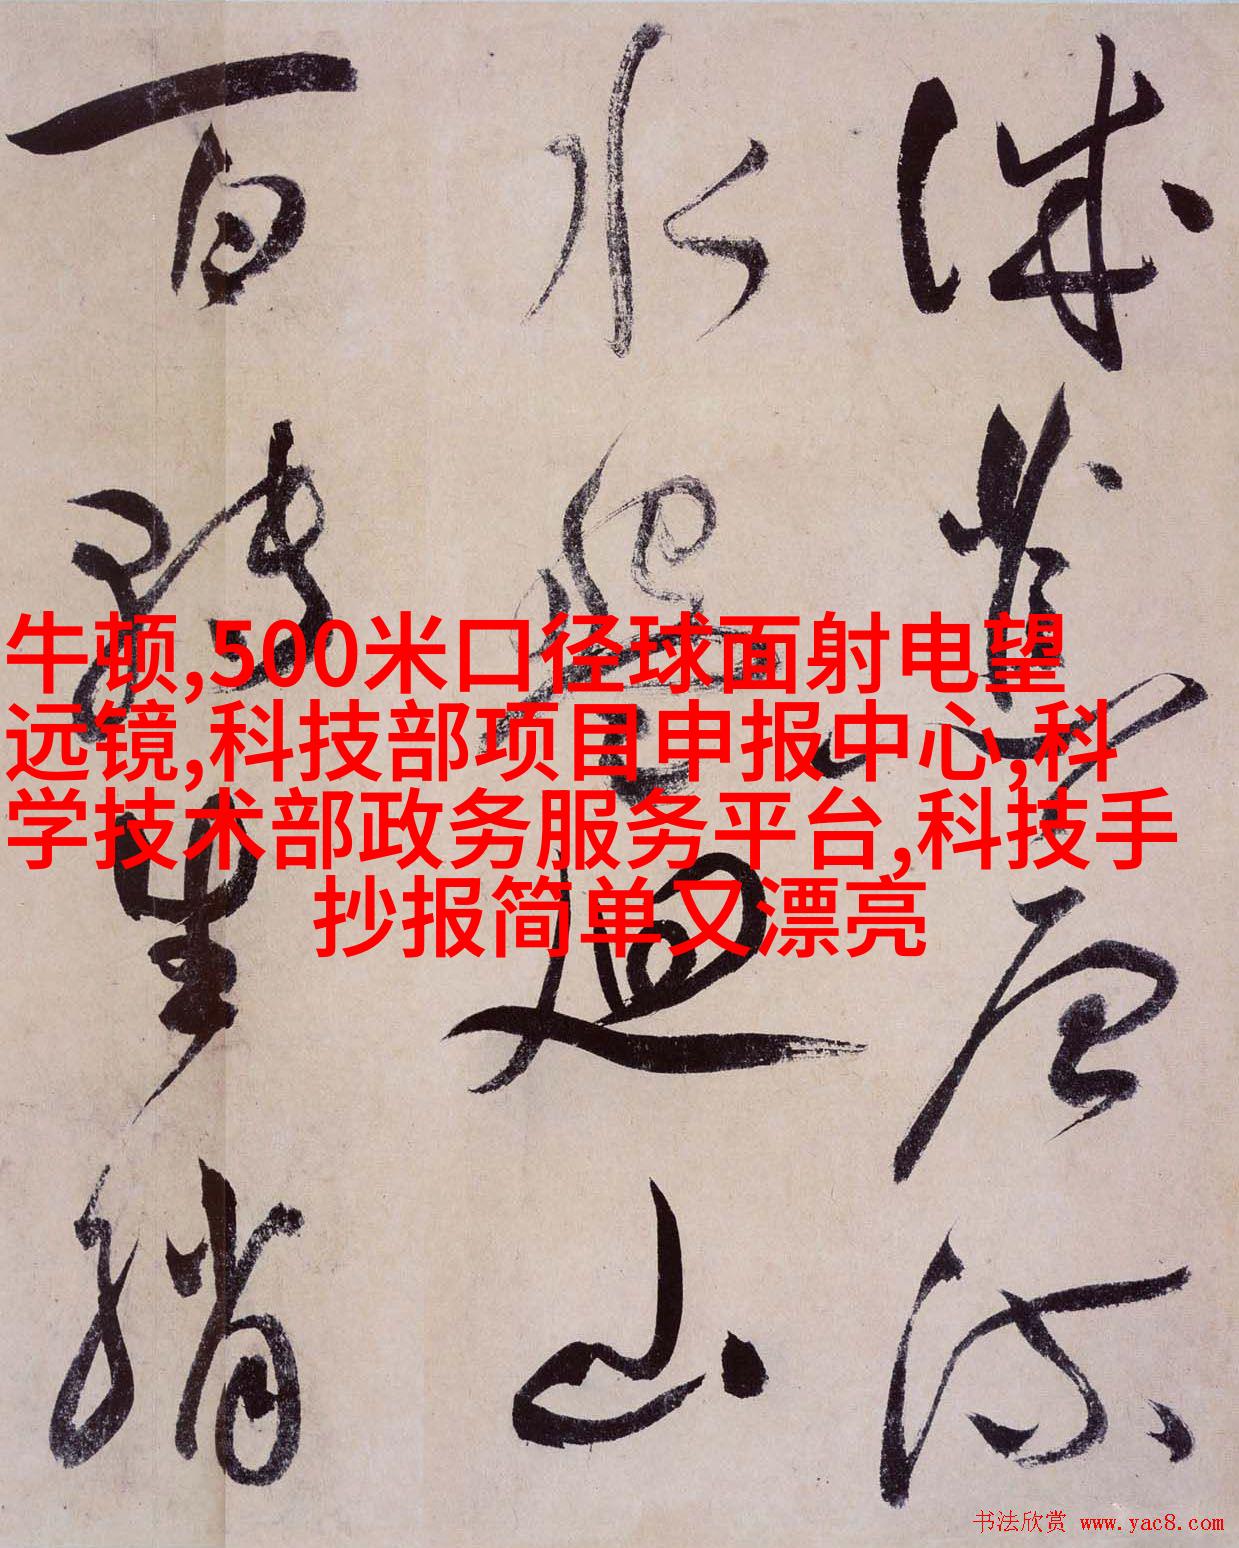 誠荒唐流
水盤迴山
百轉生綃
牛顿,500米口径球面射电望
远镜,科技部项目申报中心,科
学技术部政务服务平台,科技手
抄报简单又漂亮
书法欣赏 www.yac8.com